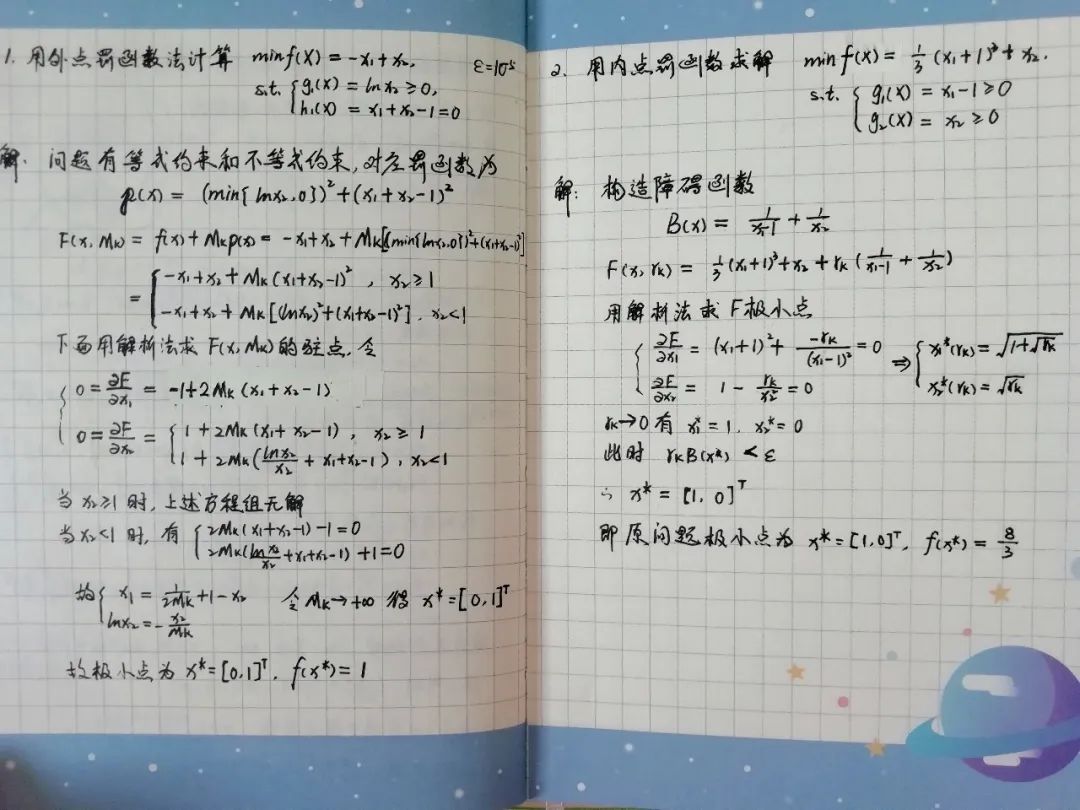 1. 用外点罚函数法计算 min f(X) = -x₁+x₂, ε=10⁻⁵
s.t. { g₁(X) = ln x₂ ≥ 0,
h₁(X) = x₁+x₂-1=0
解. 问题有等式约束和不等式约束, 对应罚函数为
p(x) = (min{ln x₂, 0})² + (x₁+x₂-1)²
F(x, Mₖ) = f(x) + Mₖp(x) = -x₁+x₂ + Mₖ[(min{ln x₂, 0})²+(x₁+x₂-1)²]
= { -x₁+x₂ + Mₖ(x₁+x₂-1)², x₂≥1
-x₁+x₂ + Mₖ[(ln x₂)²+(x₁+x₂-1)²], x₂<1
下面用解析法求 F(x, Mₖ) 的驻点, 令
{ 0 = ∂F/∂x₁ = -1+2Mₖ(x₁+x₂-1)
0 = ∂F/∂x₂ = { 1+2Mₖ(x₁+x₂-1), x₂ ≥ 1
1+2Mₖ(ln x₂/x₂ + x₁+x₂-1), x₂<1
当 x₂≥1 时, 上述方程组无解
当 x₂<1 时, 有 { 2Mₖ(x₁+x₂-1)-1=0
2Mₖ(ln x₂/x₂+x₁+x₂-1)+1=0
故 { x₁ = 1/2Mₖ+1-x₂ 令 Mₖ→+∞ 得 x* = [0,1]ᵀ
ln x₂ = -x₂/Mₖ
故极小点为 x* = [0,1]ᵀ, f(x*) = 1
2. 用内点罚函数求解 min f(X) = 1/3 (x₁+1)³ + x₂.
s.t. { g₁(X) = x₁-1≥0
g₂(X) = x₂ ≥0
解: 构造障碍函数
B(x) = 1/x₁-1 + 1/x₂
F(x, rₖ) = 1/3(x₁+1)³+x₂+rₖ(1/x₁-1 + 1/x₂)
用解析法求 F 极小点
{ ∂F/∂x₁ = (x₁+1)²+ -rₖ/(x₁-1)² = 0 ⇒ { x₁*(rₖ) = √1+√rₖ
∂F/∂x₂ = 1 - rₖ/x₂² = 0 x₂*(rₖ) = √rₖ
rₖ→0 有 x₁* = 1, x₂* = 0
此时 rₖB(x*) < ε
∴ x* = [1, 0]ᵀ
即原问题极小点为 x* = [1,0]ᵀ, f(x*) = 8/3